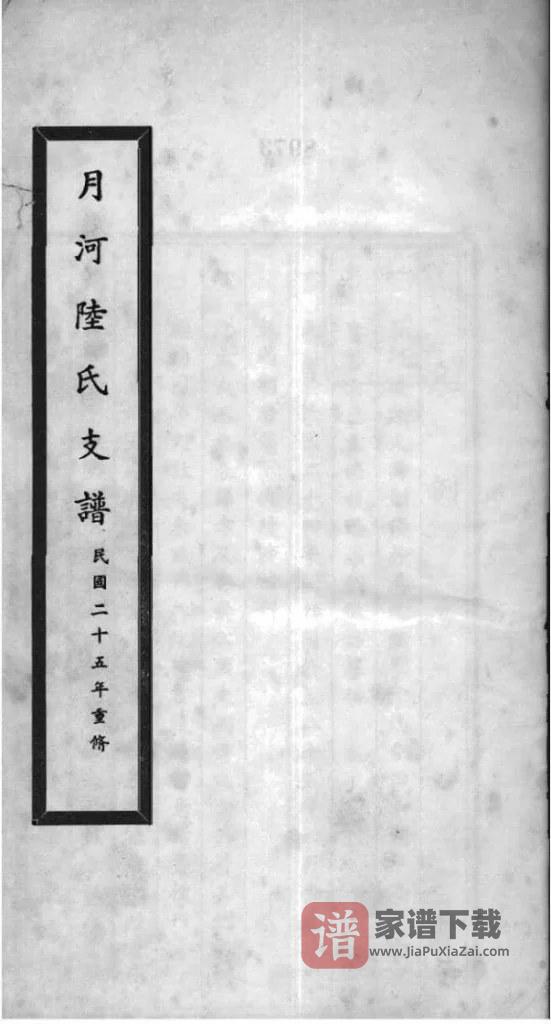 月河陸氏支譜
民國二十五年重脩
谱
家谱下载
www.JiaPuXiaZai.com